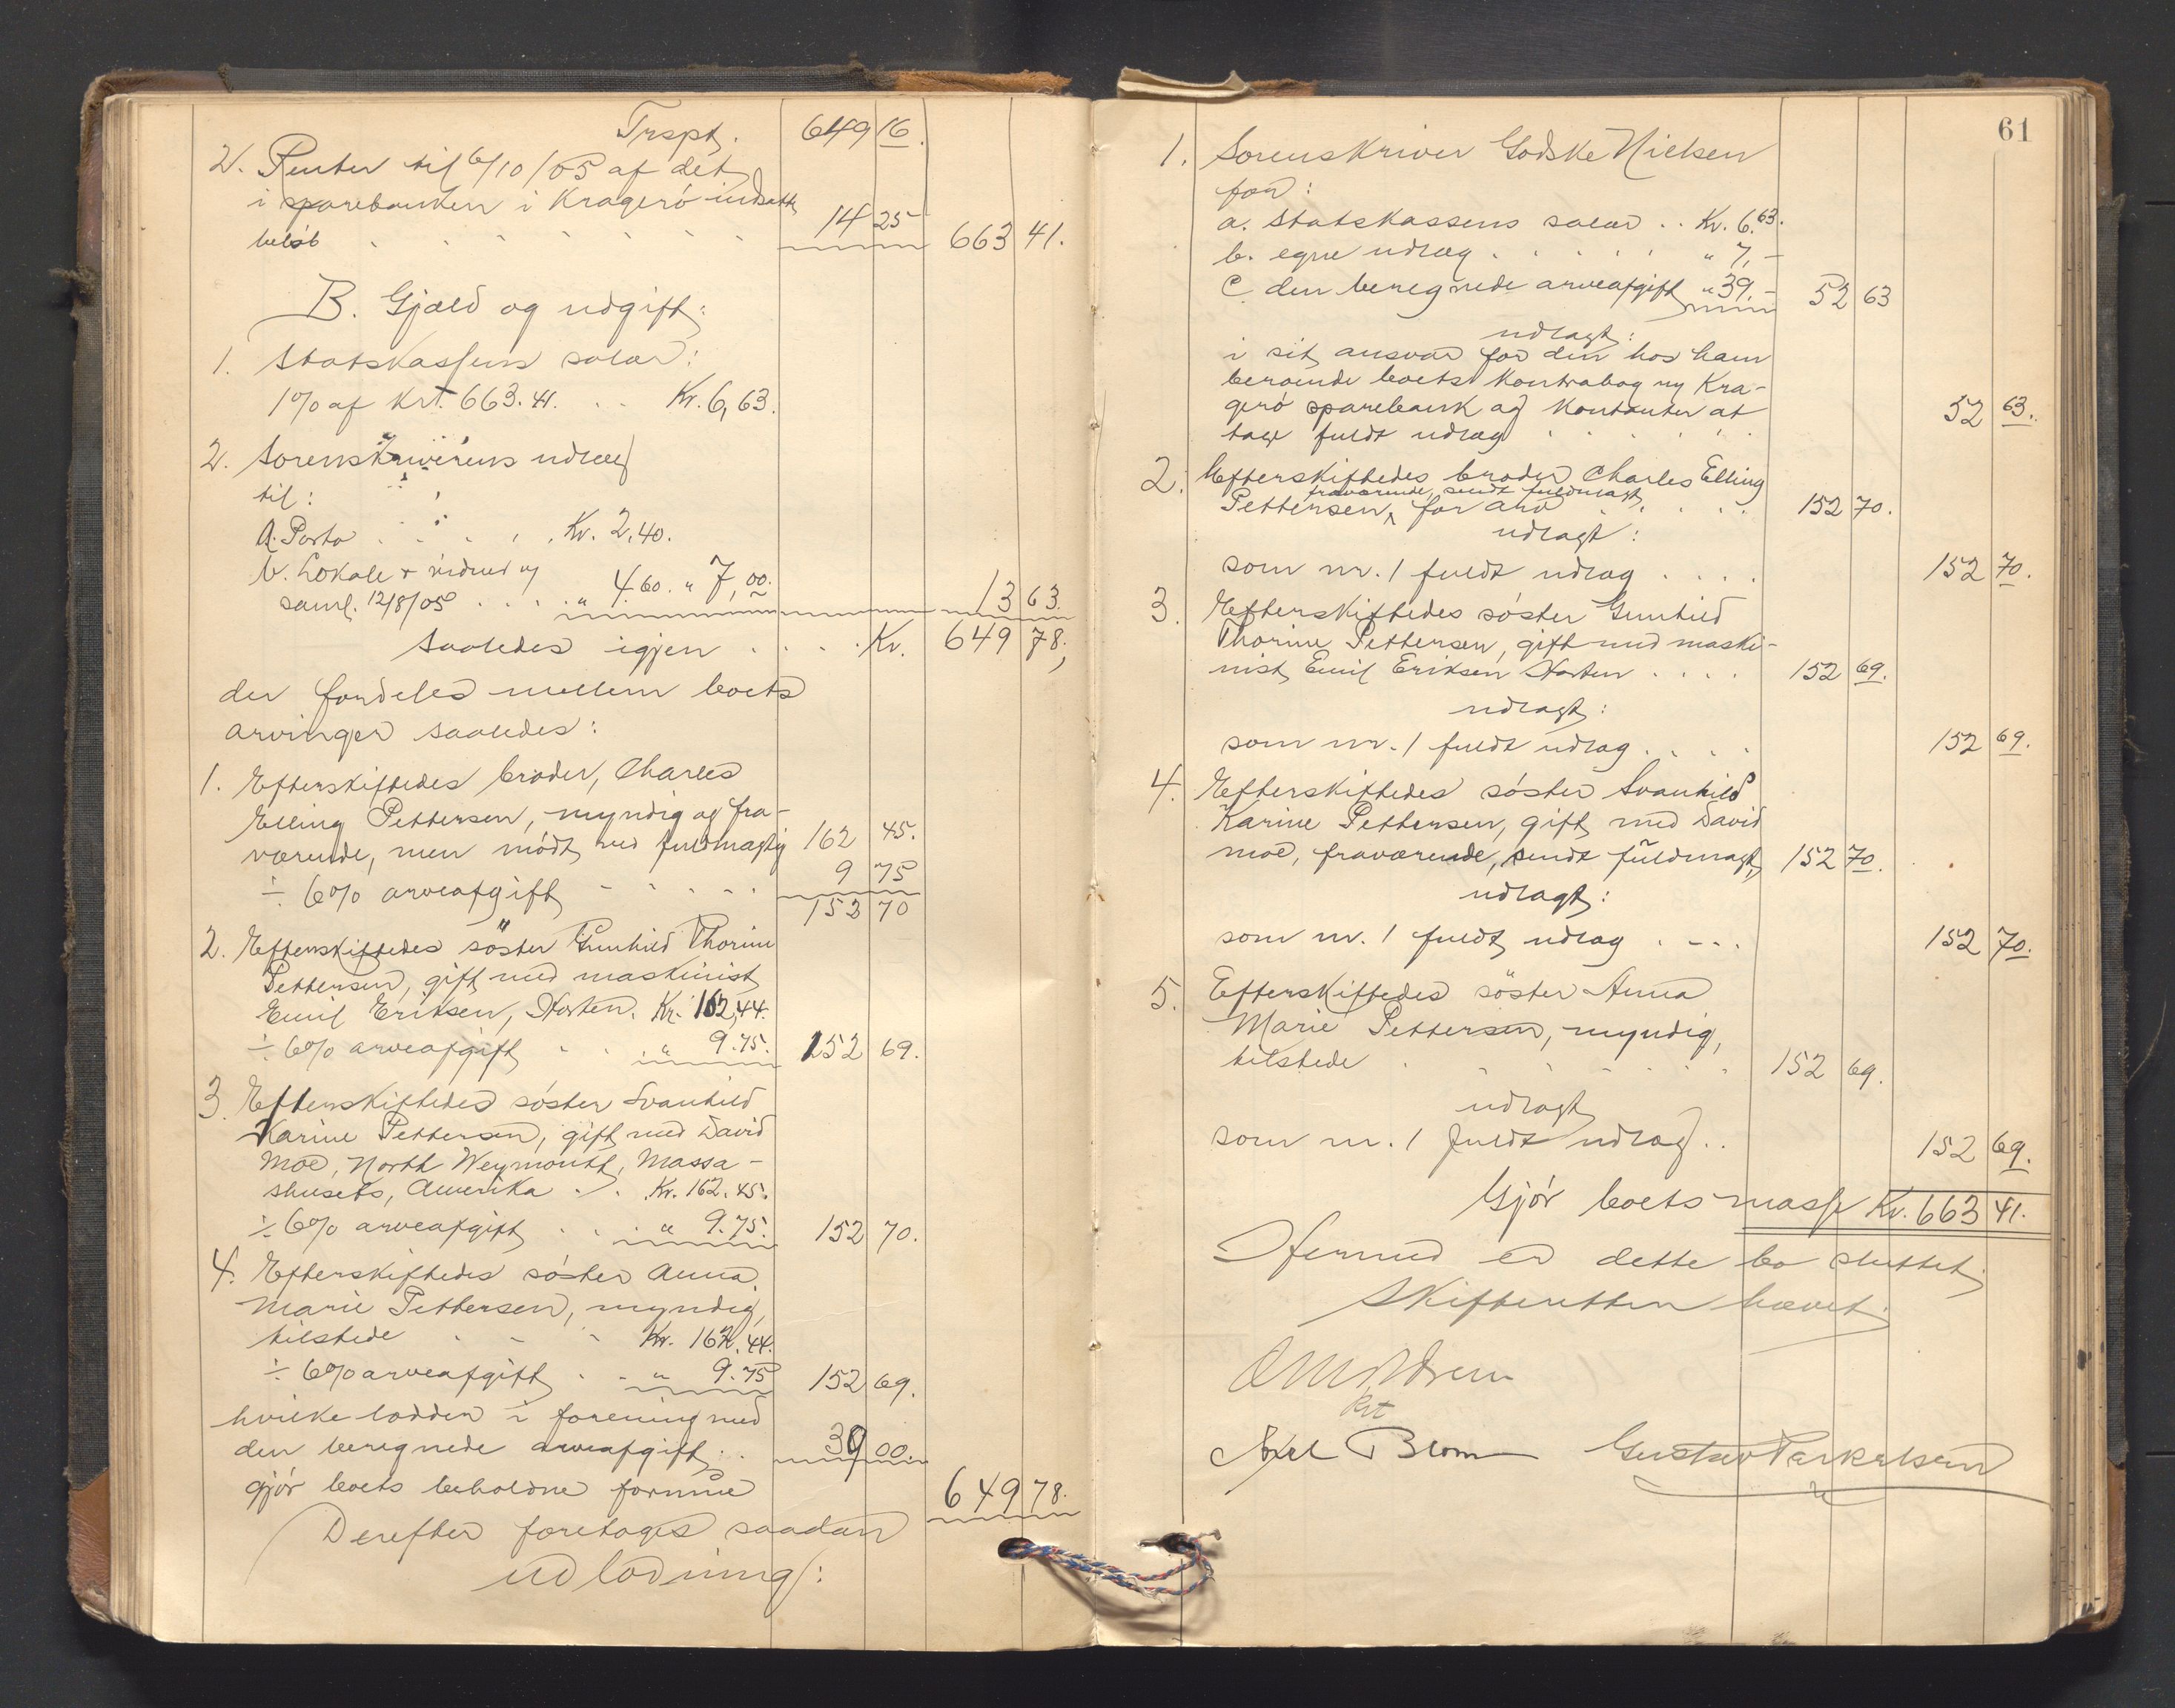 Trspt. 649 16.
2. Renter til 6/10/05 af det
i sparebanken i Kragerö indsatte
belöb . . . . . . . 14 25 663 41.
B. Gjæld og udgift:
1. Statskassens salær:
1% af krt. 663.41. . . Kr. 6,63.
2. Sorenskriverens udlæg
til:
a. Porto . . . . . Kr. 2.40.
b. Lokale + vidner ny
saml. 12/8/05 . . . . " 4.60. " 7,00. 13 63.
Saaledes igjen . . . . Kr. 649 78;
der fordeles mellem boets
arvinger saaledes:
1. Efterskiftedes broder, Charles
Elling Pettersen, myndig og fra-
værende, men mödt ved fuldmægtig 162 45.
÷ 6% arveafgift - . . . . 9 75
152 70
2. Efterskiftedes söster Gunhild Thorine
Pettersen, gift med maskinist
Emil Eriksen, Horten. Kr. 162,44.
÷ 6% arveafgift . . . " 9.75. 152 69.
3. Efterskiftedes söster Svanhild
Karine Pettersen, gift med David
Moe, North Weymouth, Massa-
shusets, Amerika . . . Kr. 162.45.
÷ 6% arveafgift . . . " 9.75. 152 70.
4. Efterskiftedes söster Anna
Marie Pettersen, myndig,
tilstede . - - Kr. 162.44.
÷ 6% arveafgift . . " 9.75 152 69.
hvilke lodder i forening med
den beregnede arveafgift . . 39 00.
gjör boets beholdne formue 649 78.
Derefter foretoges saadan
udlodning:
61
1. Sorenskriver Godske Nielsen
for:
a. Statskassens salær . . Kr. 6.63.
b. egne udlæg . . . . . " 7,-
c. den beregnede arveafgift " 39,- 52 63
udlagt:
i sit ansvar for den hos ham
beroende boets kontrabog ny Kra-
gerö sparebank og kontanter at
tage fuldt udlæg . . . . . . 52 63.
2. Efterskiftedes broder Charles Elling
fraværende, sendt fuldmagt,
Pettersen, for arv . . . . . 152 70.
udlagt:
som nr. 1 fuldt udlag . . . . 152 70.
3. Efterskiftedes söster Gunhild
Thorine Pettersen, gift med maski-
nist Emil Eriksen Horten . . . . 152 69.
udlagt:
som nr. 1 fuldt udlag . . . . 152 69.
4. Efterskiftedes söster Svanhild
Karine Pettersen, gift med David
Moe, fraværende, sendt fuldmagt, 152 70.
udlagt:
som nr. 1 fuldt udlag . - - . 152 70.
5. Efterskiftedes söster Anna
Marie Pettersen, myndig,
tilstede . . . . . . . 152 69.
udlagt
som nr. 1 fuldt udlag . . 152 69.
Gjör boets masse Kr. 663 41.
Hermed er dette bo sluttet.
Skifteretten hævet.
Axel Blom Gustav Terkelsen